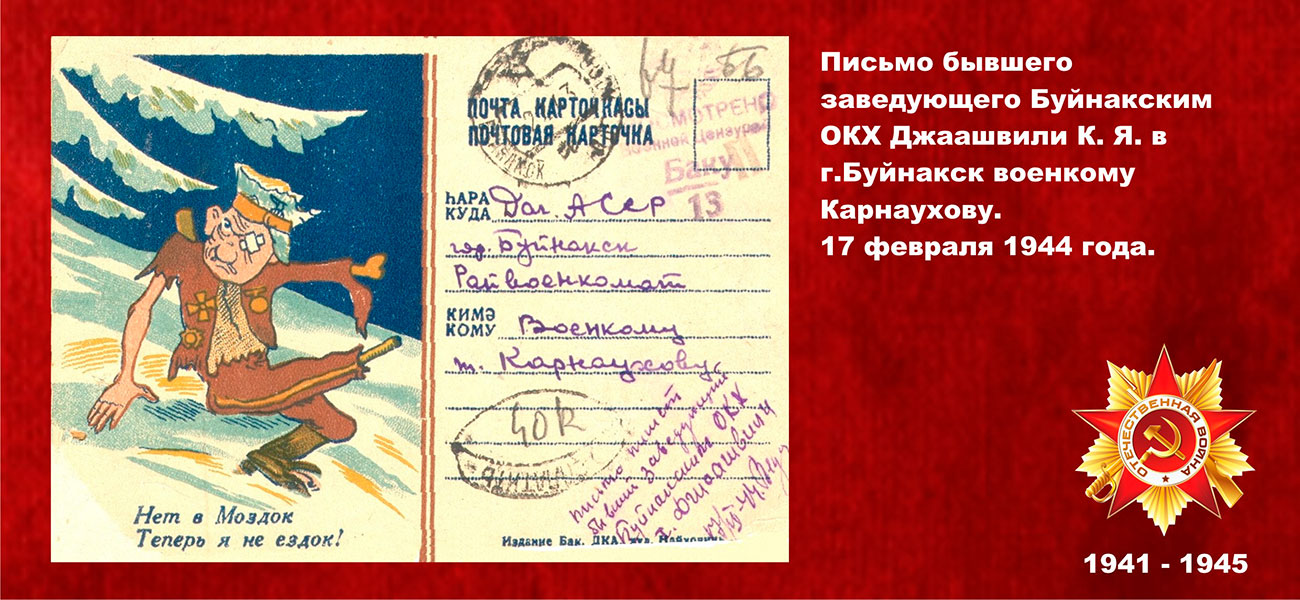 Нет в Моздок
Теперь я не ездок!
ПОЧТА КАРТОЧКАСЫ
ПОЧТОВАЯ КАРТОЧКА
ПРОСМОТРЕНО
Военной Цензурой
Баку
13
ҺАРА
КУДА Даг. АССР
гор. Буйнакск
Райвоенкомат
КИМӘ
КОМУ Военкому
т. Карнаухову
40 к
ДОПЛАТИТЬ
письмо пишет
бывший заведующий
Буйнакским ОКХ
т. Джаашвили
Издание Бак. ДКА
Письмо бывшего
заведующего Буйнакским
ОКХ Джаашвили К. Я. в
г.Буйнакск военкому
Карнаухову.
17 февраля 1944 года.
ОТЕЧЕСТВЕННАЯ ВОЙНА
1941 - 1945